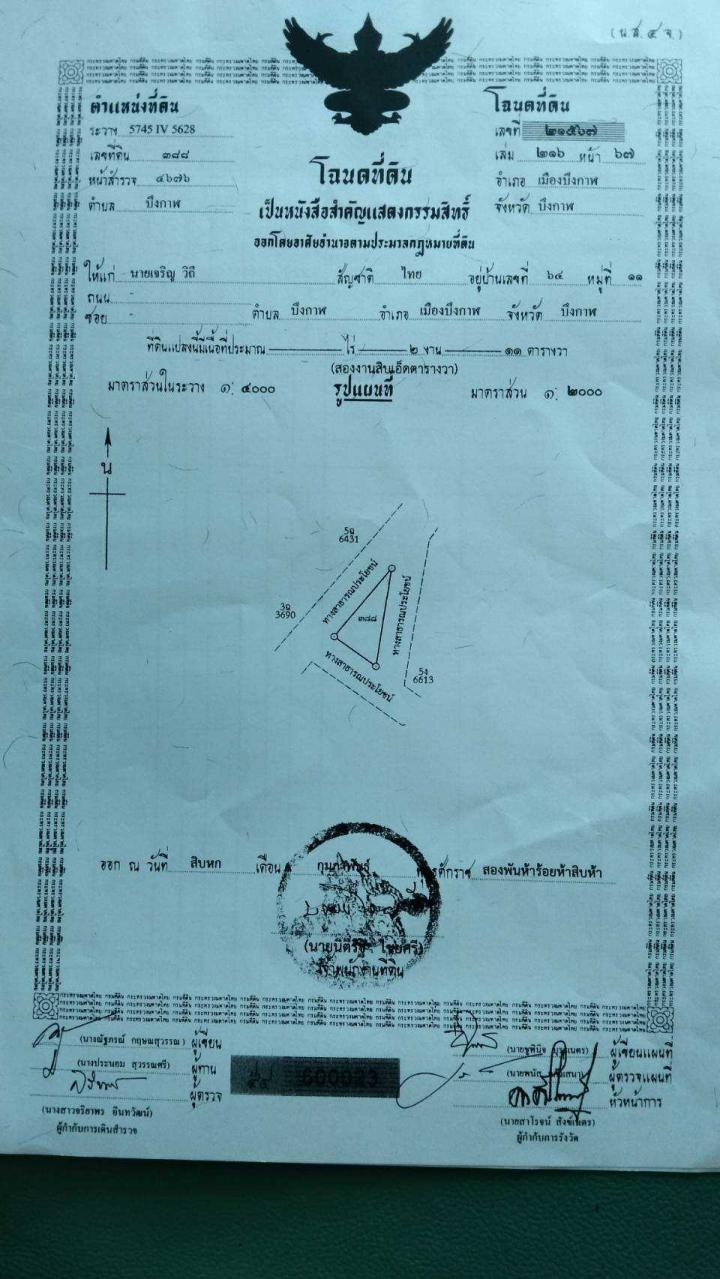 (น.ส.๔ จ.)
ตำแหน่งที่ดิน
ระวาง 5745 IV 5628
เลขที่ดิน ๓๘๘
หน้าสำรวจ ๔๖๗๖
ตำบล บึงกาฬ
โฉนดที่ดิน
เลขที่ ๒๑๕๖๗
เล่ม ๒๑๖ หน้า ๖๗
อำเภอ เมืองบึงกาฬ
จังหวัด บึงกาฬ
โฉนดที่ดิน
เป็นหนังสือสำคัญแสดงกรรมสิทธิ์
ออกโดยอาศัยอำนาจตามประมวลกฎหมายที่ดิน
ให้แก่ นายเจริญ วิถี สัญชาติ ไทย อยู่บ้านเลขที่ ๖๔ หมู่ที่ ๑๑
ถนน -
ซอย - ตำบล บึงกาฬ อำเภอ เมืองบึงกาฬ จังหวัด บึงกาฬ
ที่ดินแปลงนี้มีเนื้อที่ประมาณ - ไร่ ๒ งาน ๑๑ ตารางวา
(สองงานสิบเอ็ดตารางวา)
มาตราส่วนในระวาง ๑: ๔๐๐๐ รูปแผนที่ มาตราส่วน ๑: ๒๐๐๐
น
5อ
6431
ทางสาธารณประโยชน์
3อ
3690
๓๘๘
ทางสาธารณประโยชน์
ทางสาธารณประโยชน์
6613
ออก ณ วันที่ สิบหก เดือน กุมภาพันธ์ พุทธศักราช สองพันห้าร้อยห้าสิบห้า
เจ้าพนักงานที่ดิน
(นางณัฐภรณ์ กฤษณสุวรรณ) ผู้เขียน
(นางประนอม สุวรรณศรี) ผู้ทาน
ผู้ตรวจ
(นางสาวจริยาพร อินทวัฒน์)
ผู้กำกับการเดินสำรวจ
ผู้เขียนแผนที่
ผู้ตรวจแผนที่
หัวหน้าการ
ผู้กำกับการรังวัด